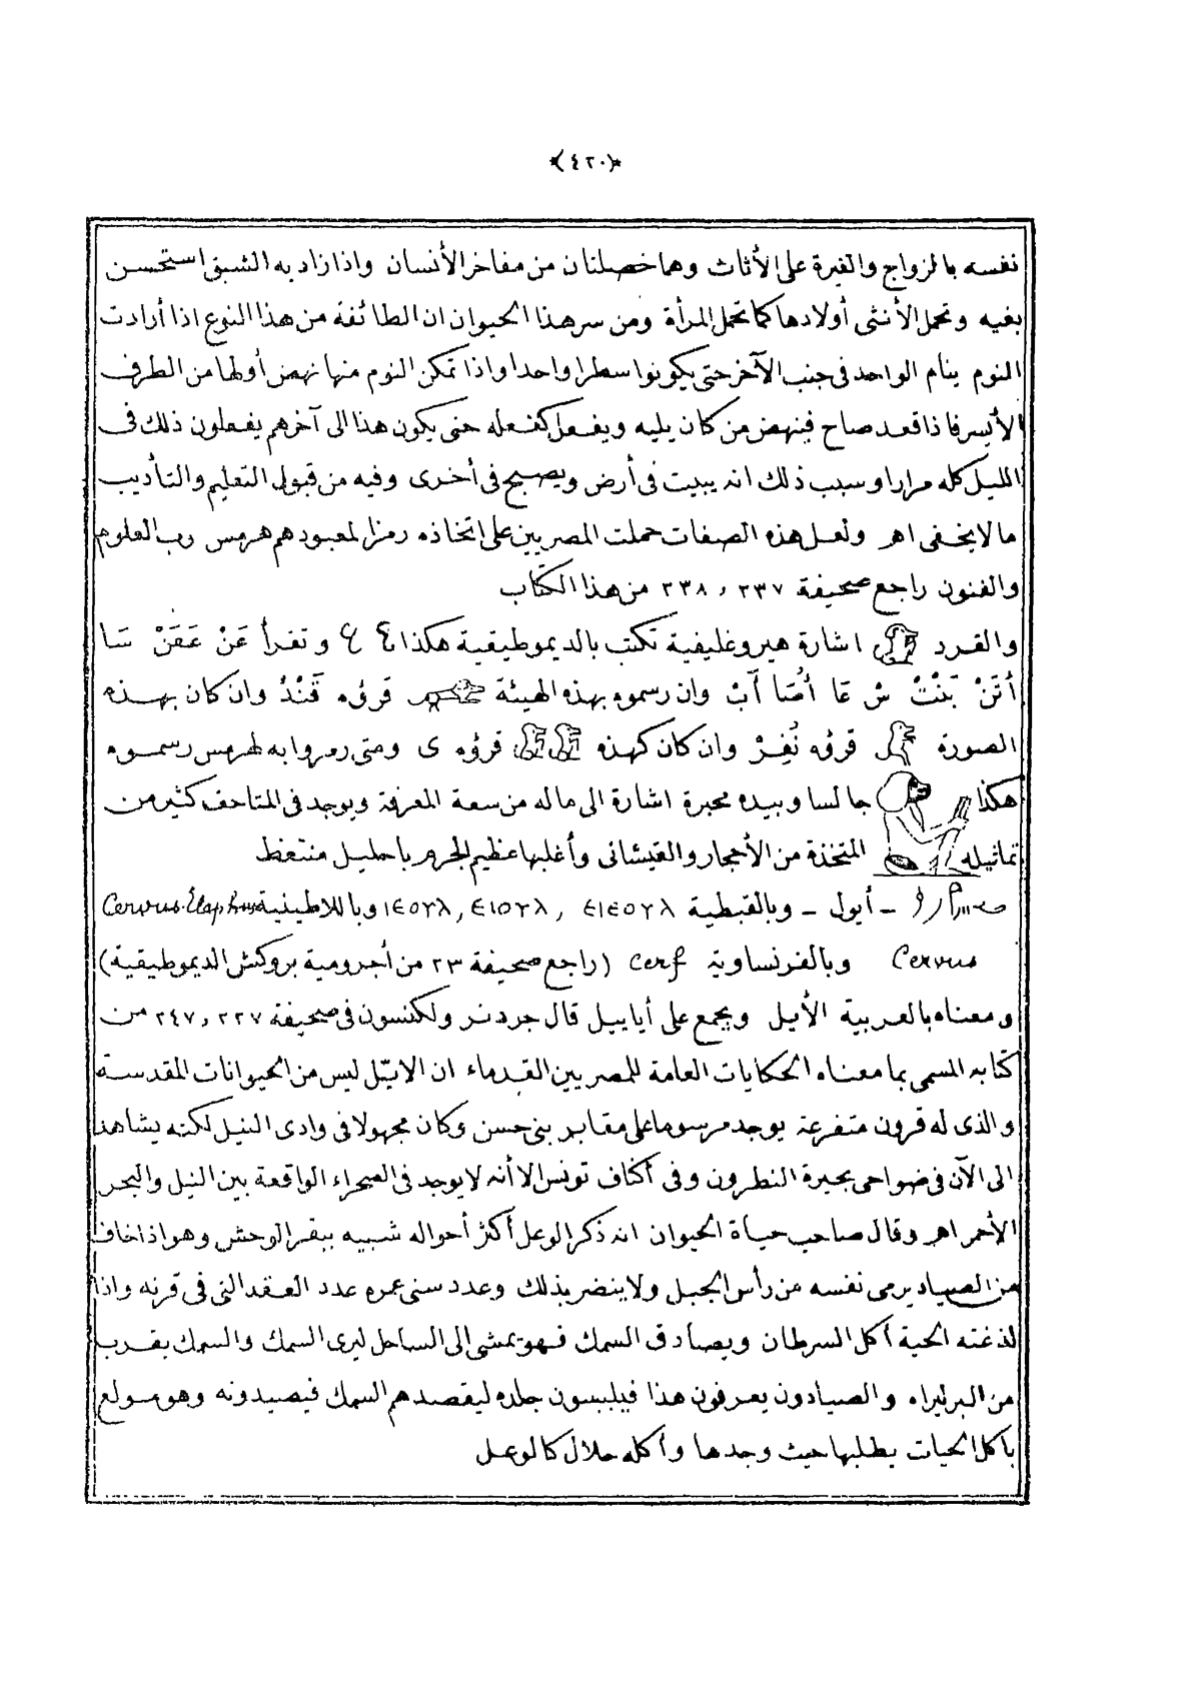 ﴿٤٢٠﴾
نفسه بالزواج والغيرة على الأناث وهما خصلتان من مفاخر الأنسان واذا زاد به الشبق استحسن
بغيه وتحمل الأنثى أولادها كما تحمل المرأة ومن سر هذا الحيوان ان الطائفة من هذا النوع اذا أرادت
النوم ينام الواحد فى جنب الآخر حتى يكونوا سطرا واحدا واذا تمكن النوم منها نهض أولها من الطرف
الأيسر فاذا قعد صاح فينهض من كان يليه ويفعل كفعله حتى يكون هذا الى آخرهم يفعلون ذلك فى
الليل كله مرارا وسبب ذلك انه يبيت فى أرض ويصبح فى أخرى وفيه من قبول التعليم والتأديب
ما لا يخفى اهر ولعل هذه الصفات حملت المصريين على اتخاذه رمزا لمعبودهم هرمس رب العلوم
والفنون راجع صحيفة ٢٣٧ , ٢٣٨ من هذا الكتاب
والقرد اشارة هيروغليفية تكتب بالديموطيقية هكذا وتقرأ عَنْ عَقَنْ سَا
أتَنْ بَنْتْ سْ عَا أُصَا آبْ وان رسموه بهذه الهيئة قرؤه قَنْدْ وان كان بهذه
الصورة قرؤه نُفِرْ وان كان كهذه قرؤه ى ومتى رمزوا به لهرمس رسموه
هكذا جالسا وبيده محبرة اشارة الى ماله من سعة المعرفة ويوجد فى المتاحف كثير من
تماثيله المتخذة من الأحجار والقيشانى وأغلبها عظيم الجرم باحليل منتعظ
– أيول – وبالقبطية ⲉⲓⲉⲟⲩⲗ , ⲉⲓⲟⲩⲗ , ⲓⲉⲟⲩⲗ وباللاطينية Cervus Elaphus
Cervus وبالفرنساوية Cerf (راجع صحيفة ٢٣ من أجرومية بروكش الديموطيقية)
ومعناه بالعربية الأيل ويجمع على أياييل قال جردنر ولكنسون فى صحيفة ٢٢٧ , ٢٤٧ من
كتابه المسمى بما معناه الحكايات العامة للمصريين القدماء ان الايّل ليس من الحيوانات المقدسة
والذى له قرون متفرعة يوجد مرسوما على مقابر بنى حسن وكان مجهولا فى وادى النيل لكنه يشاهد
الى الآن فى ضواحى بحيرة النطرون وفى أكناف تونس الا أنه لا يوجد فى الصحراء الواقعة بين النيل والبحر
الأحمر اهر وقال صاحب حياة الحيوان انه ذكر الوعل أكثر أحواله شبيه ببقر الوحش وهو اذا خاف
من الصياد يرمى نفسه من رأس الجبل ولا ينضر بذلك وعدد سنى عمره عدد العقد التى فى قرنه واذا
لذغته الحية أكل السرطان ويصادق السمك فهو يمشى الى الساحل ليرى السمك والسمك يقرب
من البر ليراه والصيادون يعرفون هذا فيلبسون جلده ليقصدهم السمك فيصيدونه وهو مولع
بأكل الحيات يطلبها حيث وجدها وأكله حلال كالوعل